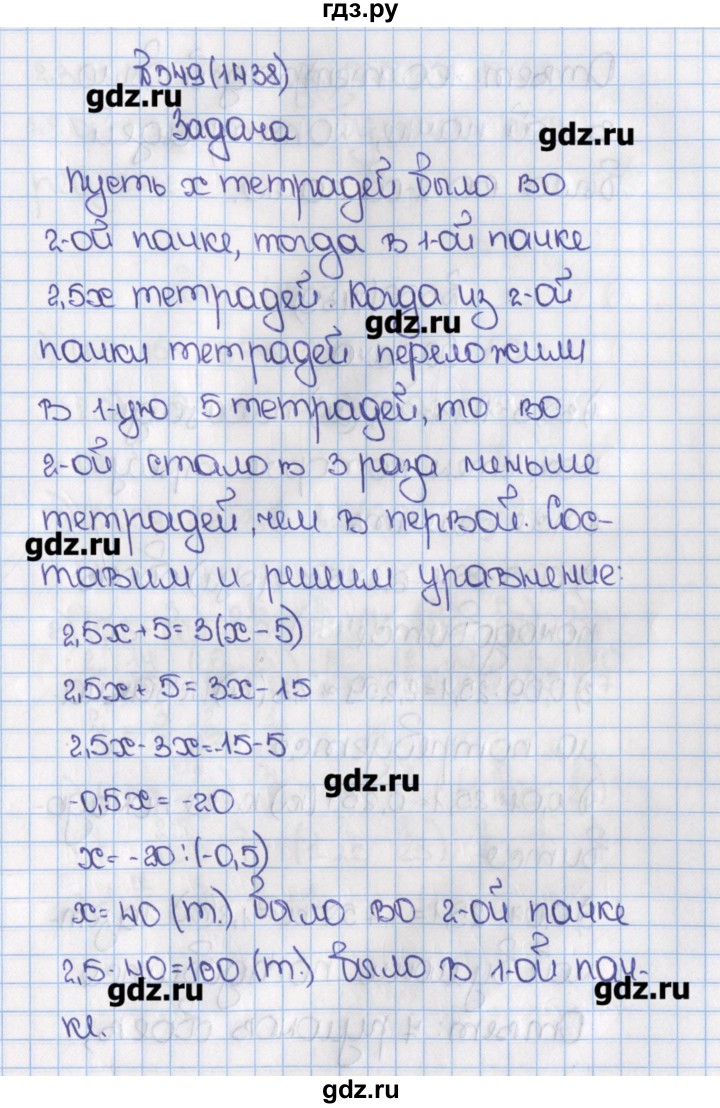 гдз.ру
№349(1438)
gdz.ru
Задача
gdz.ru
Пусть x тетрадей было во
2-ой пачке, тогда в 1-ой пачке
2,5x тетрадей. Когда из 2-ой
gdz.ru
пачки тетрадей переложим
в 1-ую 5 тетрадей, то во
2-ой стало в 3 раза меньше
тетрадей, чем в первой. Сос-
gdz.ru
тавим и решим уравнение:
2,5x+5=3(x-5)
2,5x+5=3x-15
2,5x-3x=-15-5
gdz.ru
-0,5x=-20
x=-20:(-0,5)
x=40 (т.) было во 2-ой пачке
2,5·40=100 (т.) было в 1-ой пач-
gdz.ru
gdz.ru
ке.
gdz.ru